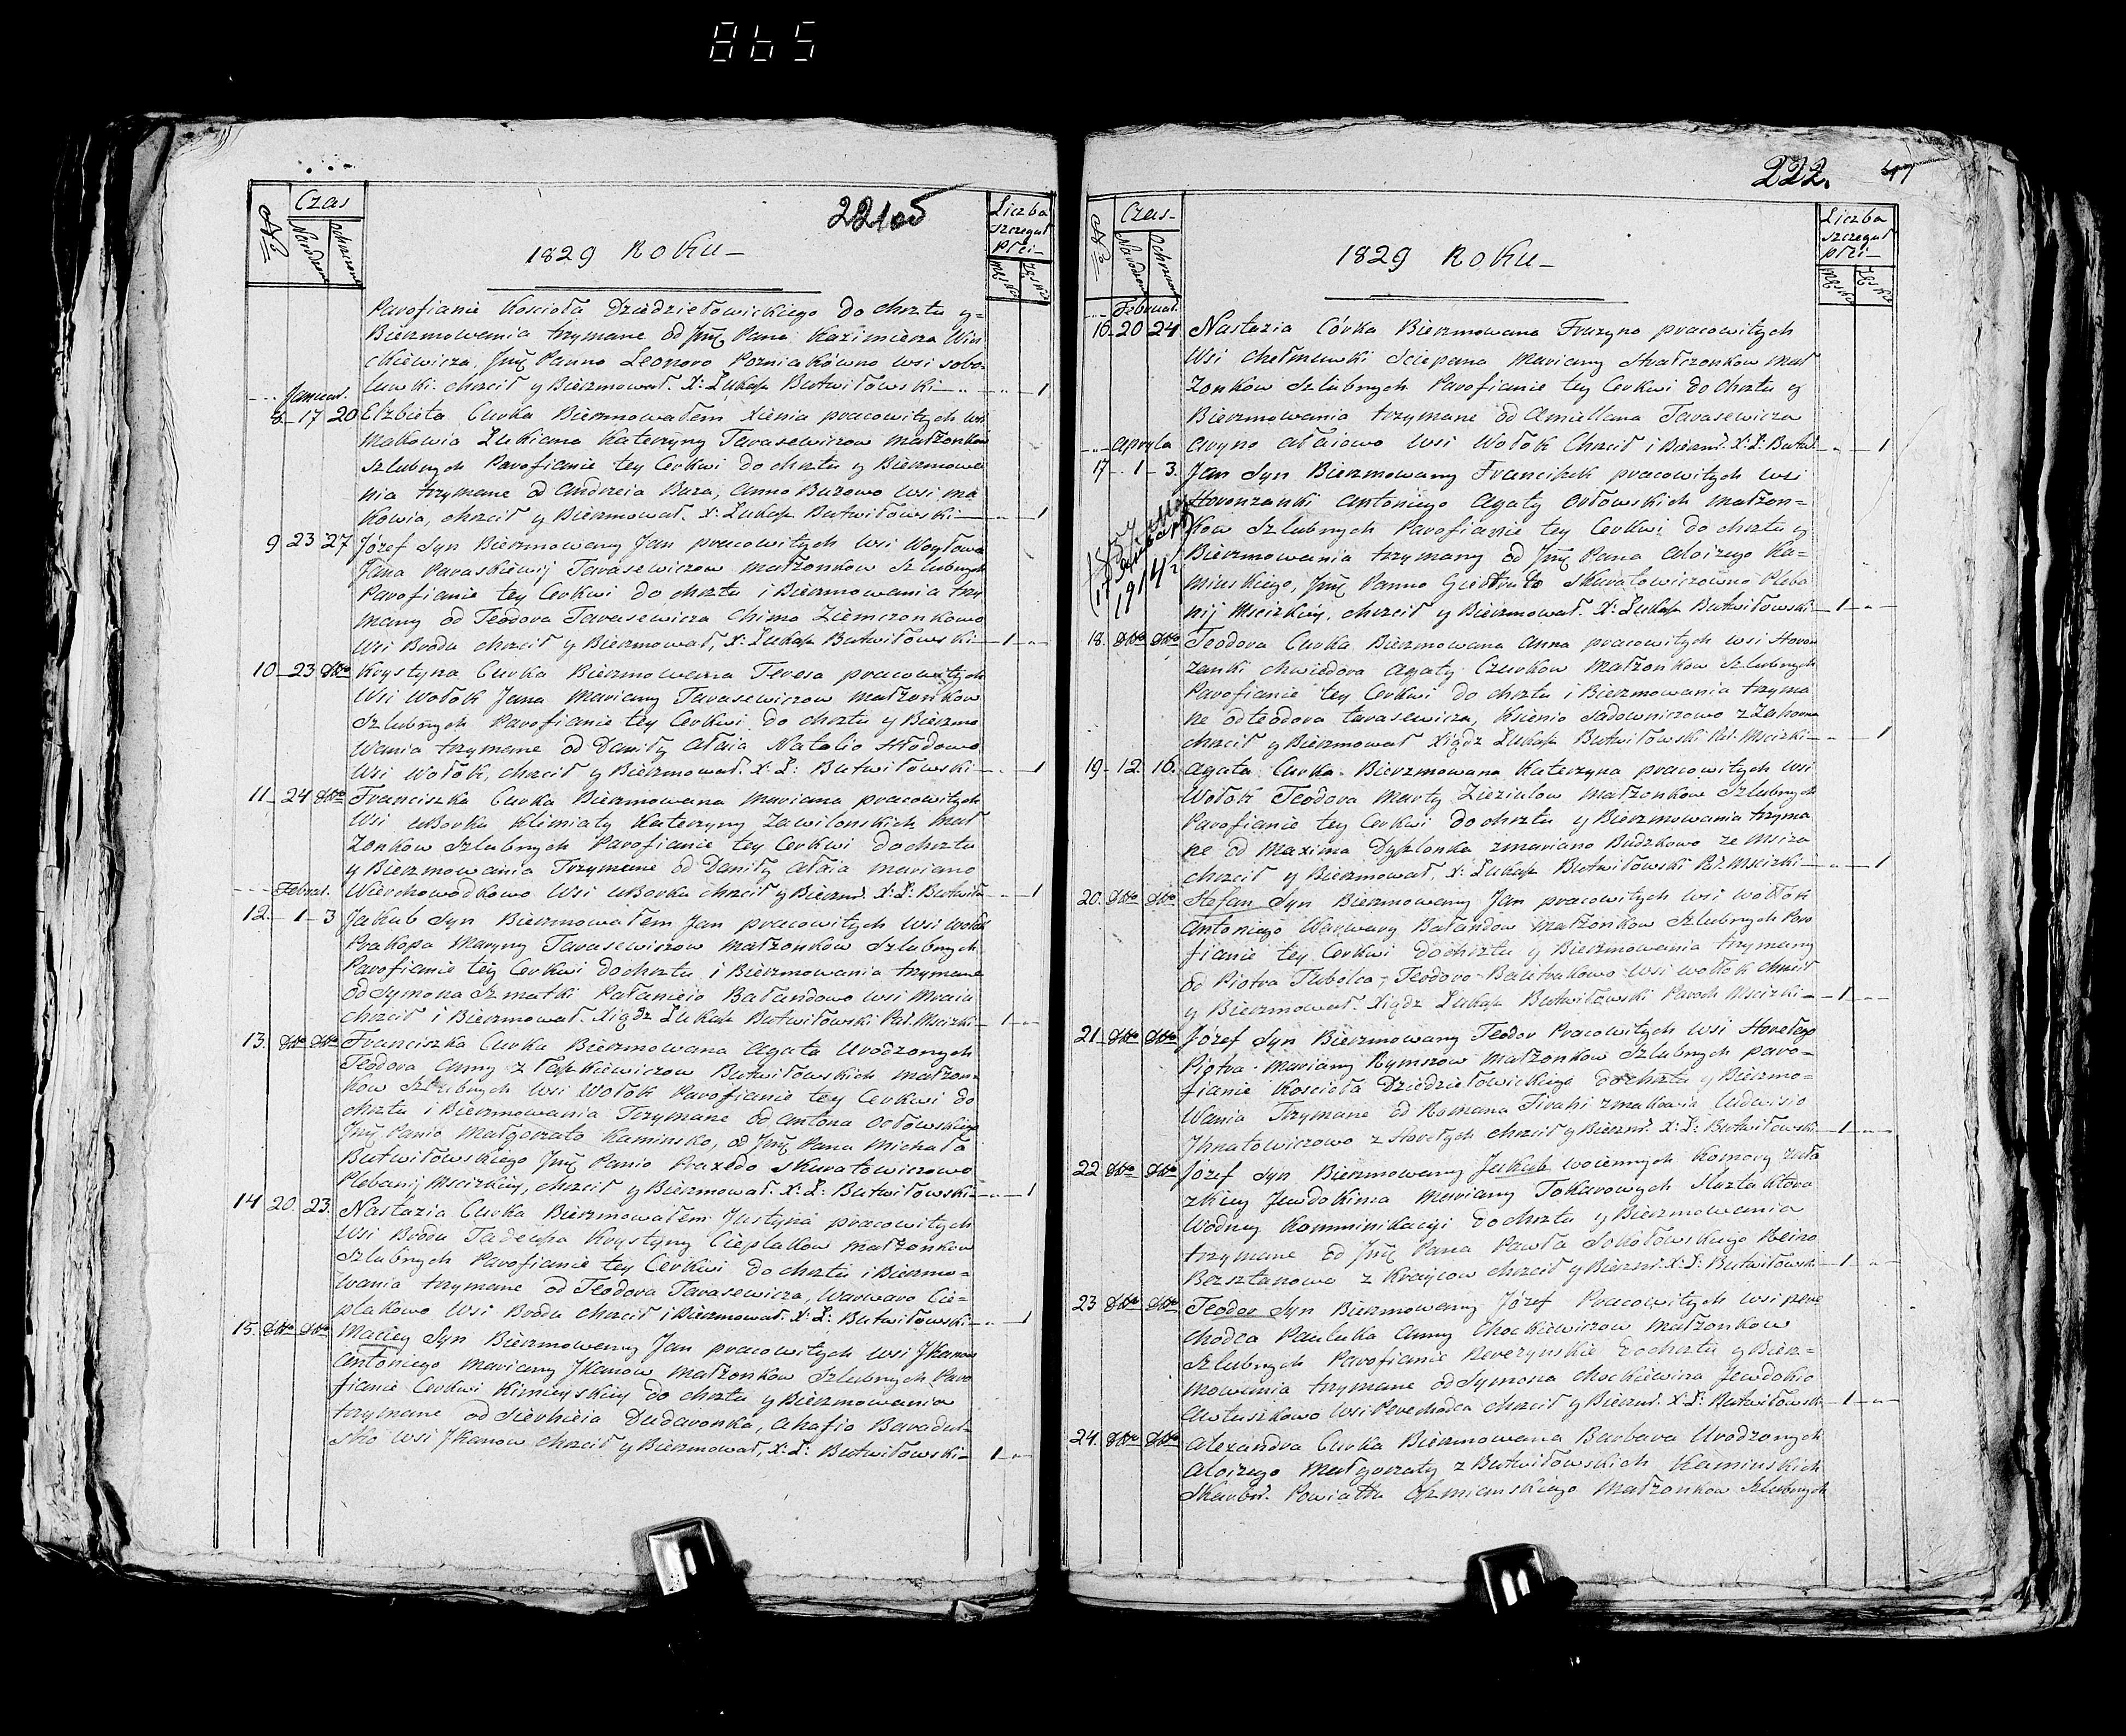 865
221 об
Czas
No
Narodzen
Ochrzczen
1829 Roku
Liczba
szczegul
płci
Męska
Żeńska
Parafianie Kościoła Dziedziełowickiego do chrztu y
Bierzmowania trzymane od Jmć Pana Kazimierza Win
ckiewicza, Jmć Panno Leonoro Pozniakówno wsi sobo
luwki chrzcił y Bierzmował. X: Łukasz Butwiłowski — 1
Januar.
8 17 20 Elzbieta Curka Bierzmowałem Xienia pracowitych wsi
Makowia Łukiana Katerzyny Tarasewiczow Małżonkow
Szlubnych Parafianie tey Cerkwi do chrztu y Bierzmowa
nia trzymane od Andreia Buza, Anno Buzowo wsi Ma
kowia, chrzcił y Bierzmował. X: Łukasz Butwiłowski — 1
9 23 27 Józef Syn Bierzmowany Jan pracowitych wsi Woytowa
Jana Paraskiewij Tarasewiczow Małżonkow Szlubnych
Parafianie tey Cerkwi do chrztu i Bierzmowania trzy
many od Teodora Tarasewicza Chimo Ziemczonkowo
wsi Brodu chrzcił y Bierzmował, X: Łukasz Butwiłowski — 1
10 23 dtto Krystyna Curka Bierzmowana Teresa pracowitych
wsi Wołok Jana Maryany Tarasewiczow Małżonkow
Szlubnych Parafianie tey Cerkwi do chrztu y Bierzmo
wania trzymane od Daniły Ałaia Natalio Hłodowo
wsi Wołok, chrzcił y Bierzmował. X: Ł: Butwiłowski — 1
11 24 dtto Franciszka Curka Bierzmowana Mariana pracowitych
wsi uBorka Klimiaty Katerzyny Zawilonskich Mał
żonkow Szlubnych Parafianie tey Cerkwi do chrztu
y Bierzmowania Trzymane od Daniły Ałaia Mariano
Februar. Wierchowodkowo wsi uBorka chrzcił y Bierzm. X: Ł: Butwiło — 1
12 1 3 Jakub Syn Bierzmowałem Jan pracowitych wsi Wołok
Prakopa Maryny Tarasewiczow Małżonkow Szlubnych
Parafianie tey Cerkwi do chrztu i Bierzmowania trzymane
od Symona Szmatki Pałanieio Bałandowo wsi Mraia
chrzcił i Bierzmował. Xiądz Łukasz Butwiłowski Par. Mscizki — 1
13. dtto dtto Franciszka Curka Bierzmowana Agata Urodzonych
Teodora Anny z Łaszkiewiczow Butwiłowskich Małżon
kow Szlubnych wsi Wołok Parafianie tey Cerkwi do
chrztu i Bierzmowania Trzymane od Antona Orłowskiego
Jmć Panio Małgorzato Kaminsko, od Jmć Pana Michała
Butwiłowskiego Jmć Panio Praxedo Skuratowiczowo
Plebanij Mscizkiy, chrzcił y Bierzmował. X: Ł: Butwiłowski — 1
14 20. 23. Nastazia Curka Bierzmowałem Justyna pracowitych
wsi Brodu Tadeusza Krystyny Cieplakow Małżonkow
Szlubnych Parafianie tey Cerkwi do chrztu i Bierzmo
wania trzymane od Teodora Tarasewicza, Warwaro Cie
plakowo wsi Brodu chrzcił i Bierzmował. X: Ł: Butwiłowski — 1
15. dtto dtto Maciey Syn Bierzmowany Jan pracowitych wsi Jkanow
Antoniego Mariany Jkanow Małżonkow Szlubnych Para
fianie Cerkwi Kimieyskiey do chrztu y Bierzmowania
trzymane od Sierhieia Dudaronka, Ahafio Baradul
sko wsi Jkanow chrzcił y Bierzmował, X: Ł: Butwiłowski — 1
222.
Czas
No
Narodzen
Ochrzczen
1829 Roku
Liczba
szczegul
płci
Męska
Żeńska
Februar.
16. 20 24 Nastazia Córka Bierzmowana Fruzyna pracowitych
wsi Chełmuwki Sciepana Mariany Hrałczonkow Mał
żonkow Szlubnych Parafianie tey Cerkwi do chrztu y
Bierzmowania trzymane od Amiellana Tarasewicza
Apryla Aryno Ałaiowo wsi Wołok Chrzcił i Bierzm. X: Ł: Butwił — 1
17 1 3. Jan Syn Bierzmowany Franciszek pracowitych wsi
Horonzanki Antoniego Agaty Orłowskich Małżon
kow Szlubnych Parafianie tey Cerkwi do chrztu y
Bierzmowania trzymany od Jmć Pana Aloizego Ka
minskiego, Jmć Panno Giertruto Skuratowiczowno Pleba
nij Mscizkiy, chrzcił y Bierzmował. X: Łukasz Butwiłowski — 1
1914
18. dtto dtto Teodora Curka Bierzmowana Anna pracowitych wsi Horon
zanki Chwiedora Agaty Czurkow Małżonkow Szlubnych
Parafianie tey Cerkwi do chrztu i Bierzmowania trzyma
ne od Teodora Tarasewicza, Ksienio Sadowniczowo z Zahorna
chrzcił y Bierzmował Xiądz Łukasz Butwiłowski Par. Mscizki — 1
19. 12. 16. Agata Curka Bierzmowana Katerzyna pracowitych wsi
Wołok Teodora Marty Ziezialow Małżonkow Szlubnych
Parafianie tey Cerkwi do chrztu y Bierzmowania trzyma
ne od Maxima Dyszlonka z Mariano Budzkowo ze Msiza
chrzcił y Bierzmował, X: Łukasz Butwiłowski Par. Mscizki — 1
20. dtto dtto Stefan Syn Bierzmowany Jan pracowitych wsi Wołok
Antoniego Warwary Bałandow Małżonkow Szlubnych Para
fianie tey Cerkwi do chrztu y Bierzmowania trzymany
od Piotra Tubolca, Teodoro Bautrukowo wsi Wołok chrzcił
y Bierzmował. Xiądz Łukasz Butwiłowski Paroch Mscizki — 1
21 dtto dtto Józef Syn Bierzmowany Teodor Pracowitych wsi Horełego
Piotra Mariany Rymszow Małżonkow Szlubnych para
fianie Kościoła Dziedziełowickiego do chrztu y Bierzmo
wania Trzymane od Romana Tirahi z Makowia Ludwisio
Jhnatowiczowo z Horełych chrzcił y Bierzm. X: Ł: Butwiłowski — 1
22 dtto dtto Józef Syn Bierzmowany Jakub woiennych Komory
zkiey Jewdokima Mariany Tokarowych
Wodney Komminikacyi do chrztu y Bierzmowania
trzymane od Jmć Pana Pawła Sokołowskiego
Bersztanowo z Kraycow chrzcił y Bierzm. X: Ł: Butwiłowski — 1
23 dtto dtto Teodor Syn Bierzmowany Józef Pracowitych wsi pere
chodca Pauluka Anny Chockiewiczow Małżonkow
Szlubnych Parafianie Berezynskie do chrztu y Bierz
mowania trzymane od Symona Chockiewicza Jewdokio
Awtuszkowo wsi Perechodca chrzcił y Bierzm. X: Ł: Butwiłowski — 1
24. dtto dtto Alexandra Curka Bierzmowana Barbara Urodzonych
Aloizego Małgorzaty z Butwiłowskich Kaminskich
Skarbn. Powiattu Oszmianskiego Małżonkow Szlubnych